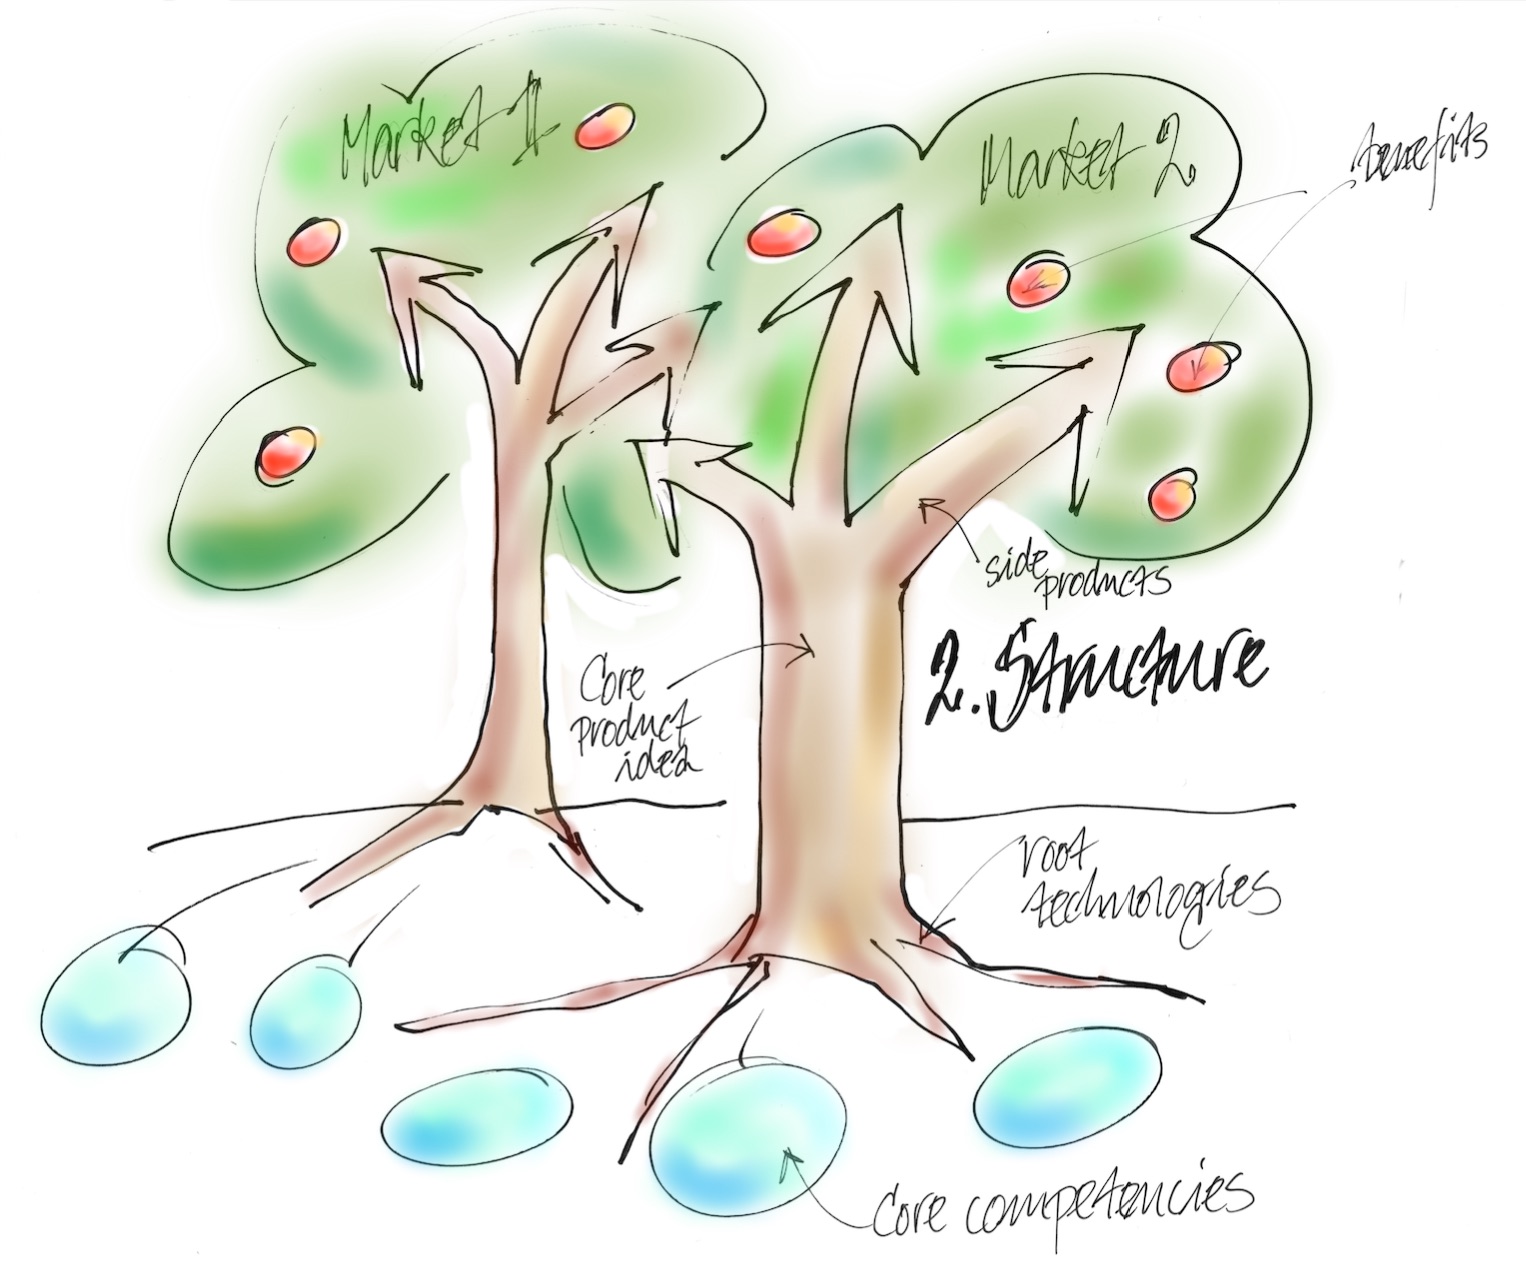 Market 1
Market 2
benefits
side
products
2. Structure
Core
product
idea
root
technologies
Core competencies